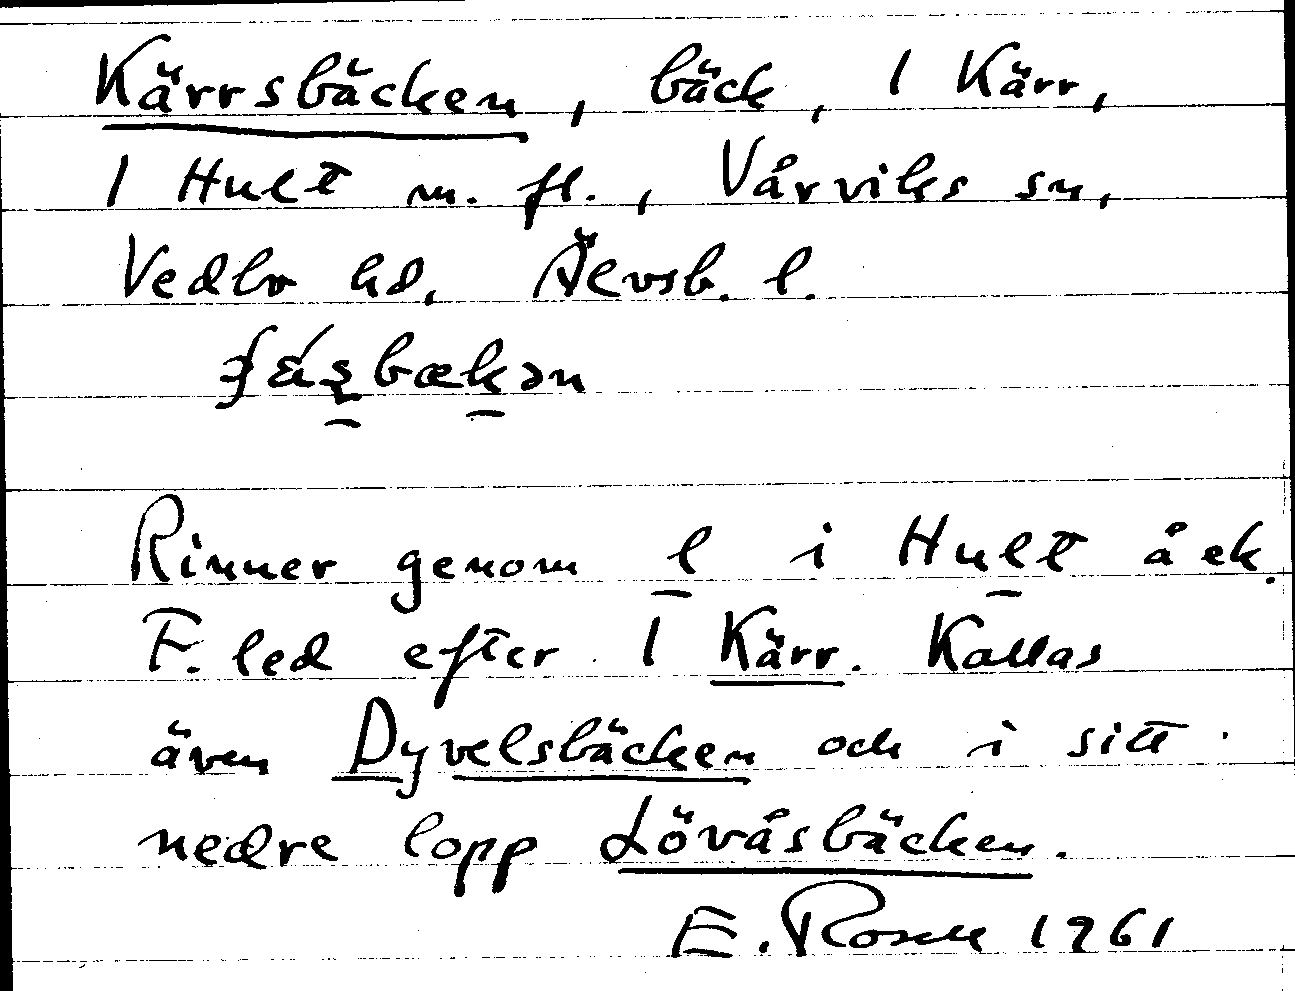 Kärrsbäcken, bäck, 1 Kärr,
1 Hult m. fl., Vårviks sn,
Vedbo hd, Älvsb. l.
Rinner genom l i Hult å ek.
F. led efter 1 Kärr. Kallas
även Dyvelsbäcken och i sitt
nedre lopp Lövåsbäcken.
E. Rosell 1961